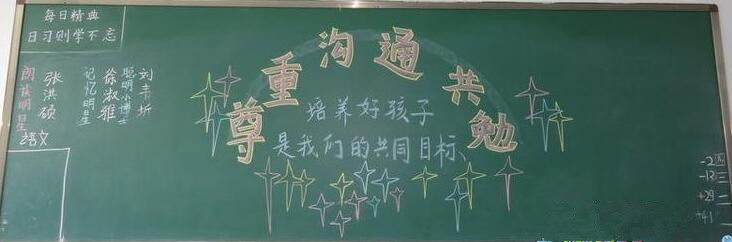 每日精典
日习则学不忘
尊重沟通共勉
培养好孩子
是我们的共同目标
朗读明星
张洪硕
记忆明星
徐淑雅
聪明小博士
语文
-2 四
-13 三
+29 二
+41 一